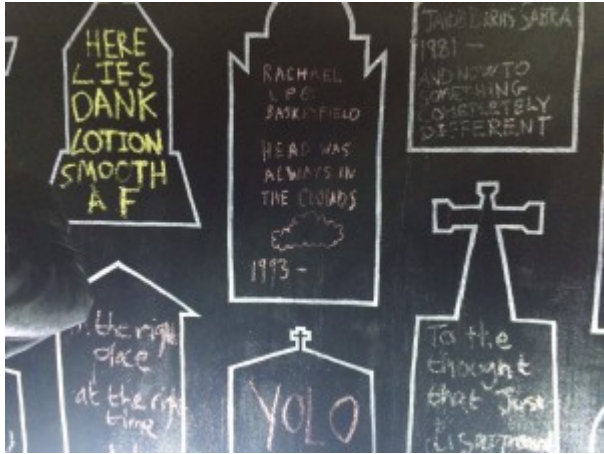 HERE
LIES
DANK
LOTION
SMOOTH
A F
RACHAEL
BASKEYFIELD
HEAD WAS
ALWAYS IN
THE CLOUDS
1993 -
SABRA
1981 -
AND NOW TO
SOMETHING
COMPLETELY
DIFFERENT
the right
place
at the right
time
YOLO
To the
thought
that Just